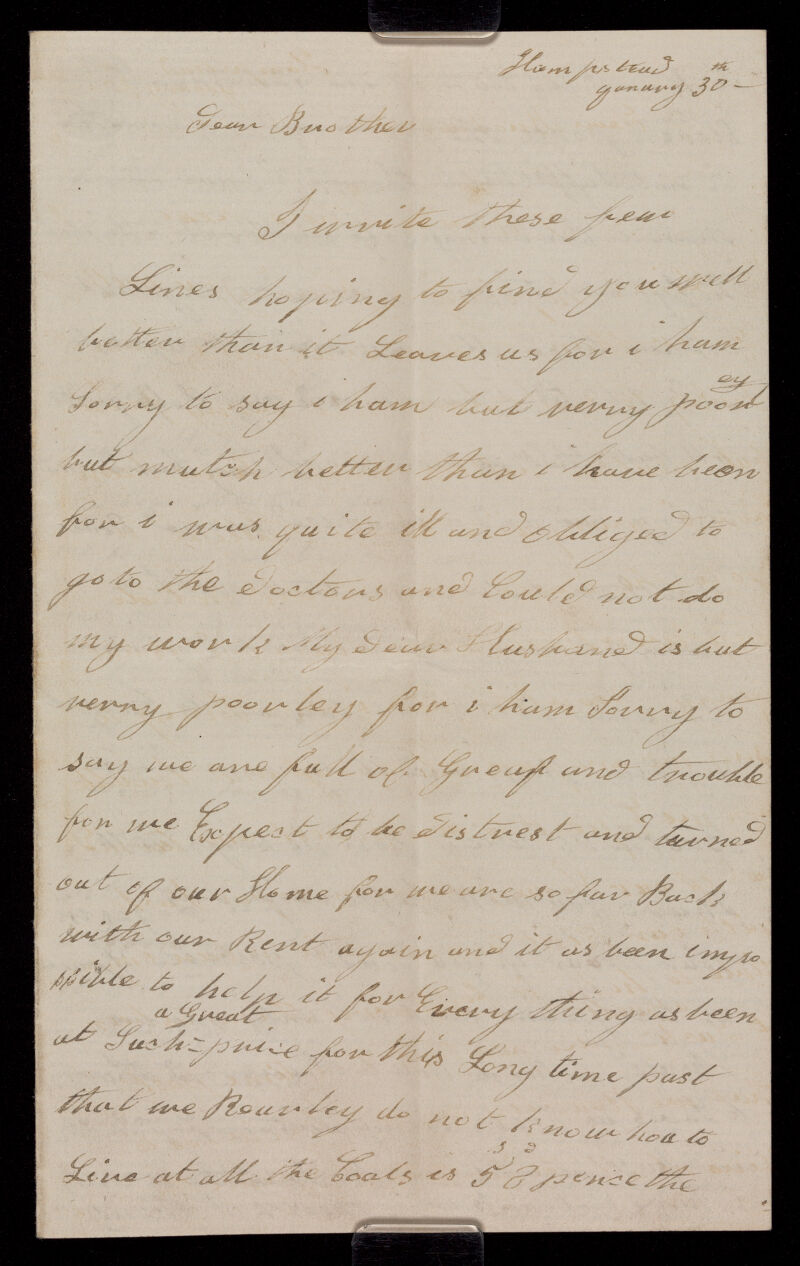 Hampstead
January 30th
Dear Brother
I write these few
Lines hoping to find you well
better than it Leaves us for i ham
Sorry to say i ham but verry poorley
but mutch better than i have been
for i was quite ill and obliged to
go to the doctors and Could not do
my work My dear Husband is but
verry poorley for i ham Sorry to
say we are full of Greaf and trouble
for we Expect to be distrest and turned
out of our Home for we are so far Back
with our Rent again and it as been impo
ssible to help it for Every thing as been
at Such a Great price for this Long time past
that we Rearley do not know hou to
Live at all the Coals is 5s 8d pence the